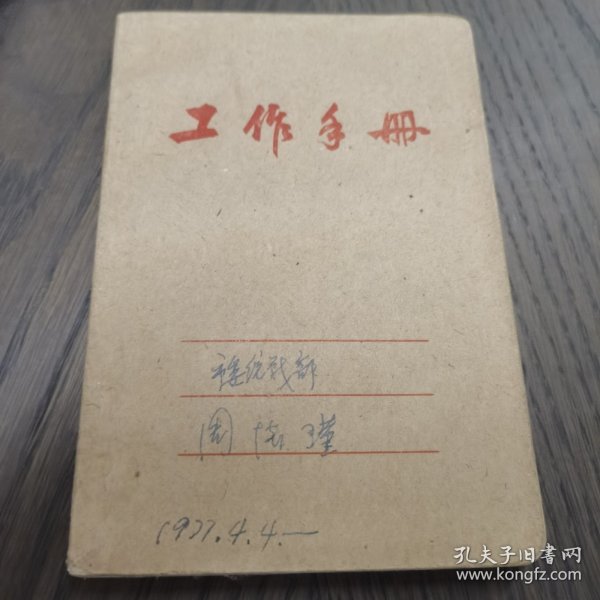 工作手册
市委统战部
周怀瑾
1977.4.4.—
孔夫子旧书网
www.kongfz.com